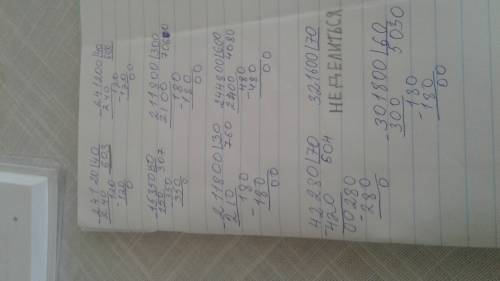 24120|40
-240 603
120
-120
0
-241200
240
-120
120
00
15350|50
150 307
350
350
0
211800|300
2100
-180
180
00
-211800|30
210 760
-180
180
00
-244800|600
2400 4080
-480
480
00
42280|70
-420 604
00280
-280
0
321600|70
НЕДЕЛИТЬСЯ
-301800|60
300 5030
-180
180
00